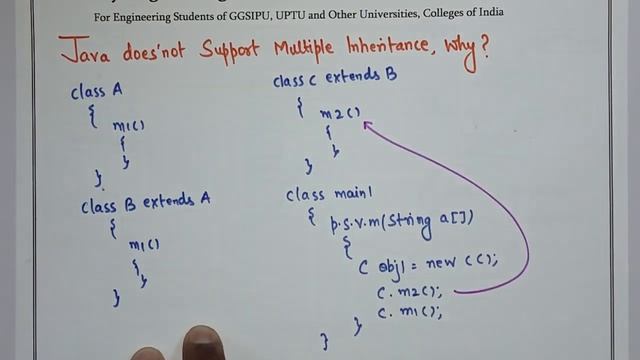 For Engineering Students of GGSIPU, UPTU and Other Universities, Colleges of India
Java does'not Support Multiple Inheritance, Why?
class A
{
m1()
{
}
}
class B extends A
{
m1()
{
}
}
class C extends B
{
m2()
{
}
}
class main1
{
p.s.v.m(String a[])
{
C obj1 = new C();
C. m2();
C. m1();
}
}